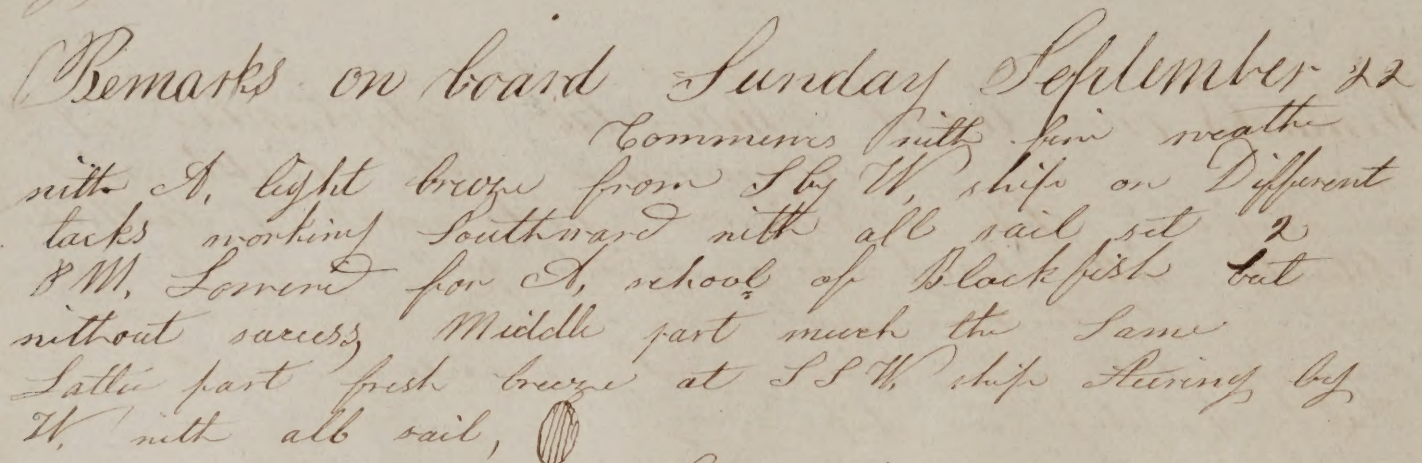 Remarks on board Sunday September 22
Commences with fine weathe
with A, light breeze from S by W, ship on Different
tacks working Southward with all sail set 2
P M, Lowered for A, school of Blackfish but
without success, Middle part much the same
Latter part fresh breeze at S S W, ship Stearing by
W. with all sail,